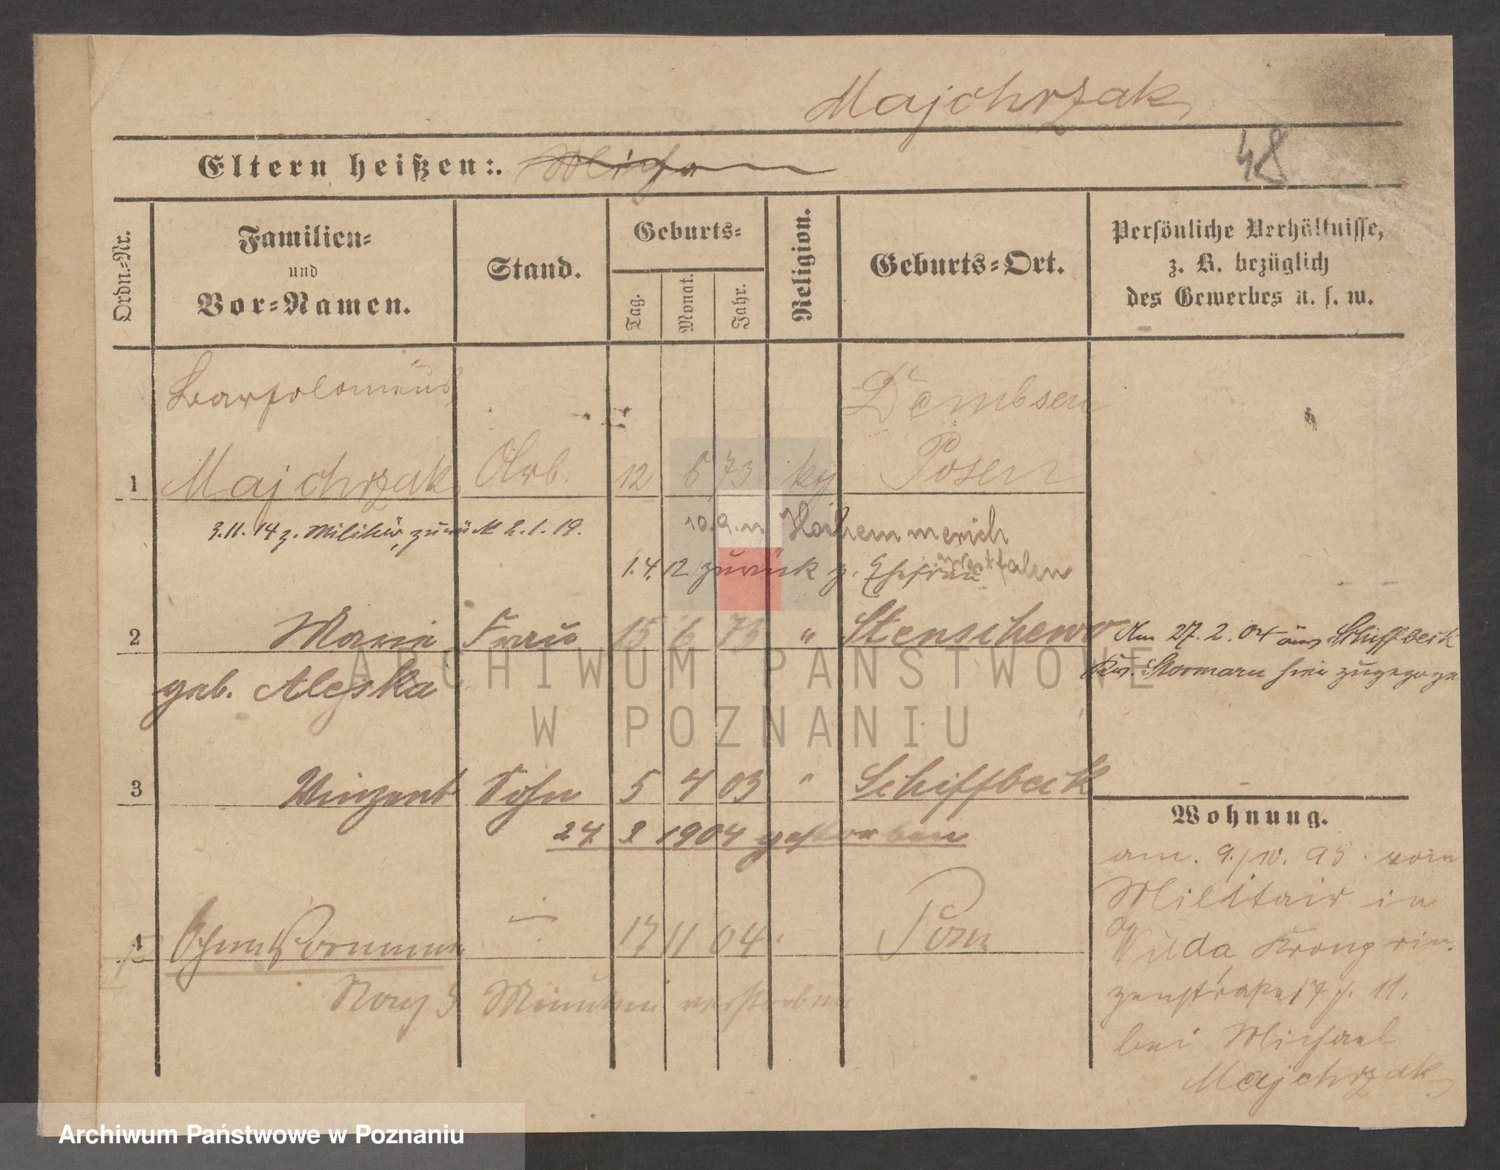 Majchrzak
Eltern heißen:
48
Ordn.-Nr.
Familien-
und
Vor-Namen.
Stand.
Geburts-
Tag.
Monat.
Jahr.
Religion.
Geburts-Ort.
Persönliche Verhältnisse,
z. B. bezüglich
des Gewerbes u. s. w.
Bartolomäus
Dembsen
1 Majchrzak Arb. 12 73 Posen
3.11.14 z. Militär, zurück 2.1.19.
10.9.11
Westfalen
1.4.12 zurück z. Ehefrau
2 Marie Frau 15 6 73 " Stenschewo
Am 27.2.04 aus Schiffbeck
Stormarn hier zugezogen
geb. Aleska
3 Vinzent Sohn 5 4 03 " Schiffbeck
24. 2 1904 gestorben
4 Ohne Vornamen 17 11 04 Posen
Nach 5 Minuten verstorben
Wohnung.
am 9./10. 95 vom
Militair in
Wilda Kronprin-
zenstraße
bei Michael
Majchrzak
ARCHIWUM PAŃSTWOWE
W POZNANIU
Archiwum Państwowe w Poznaniu